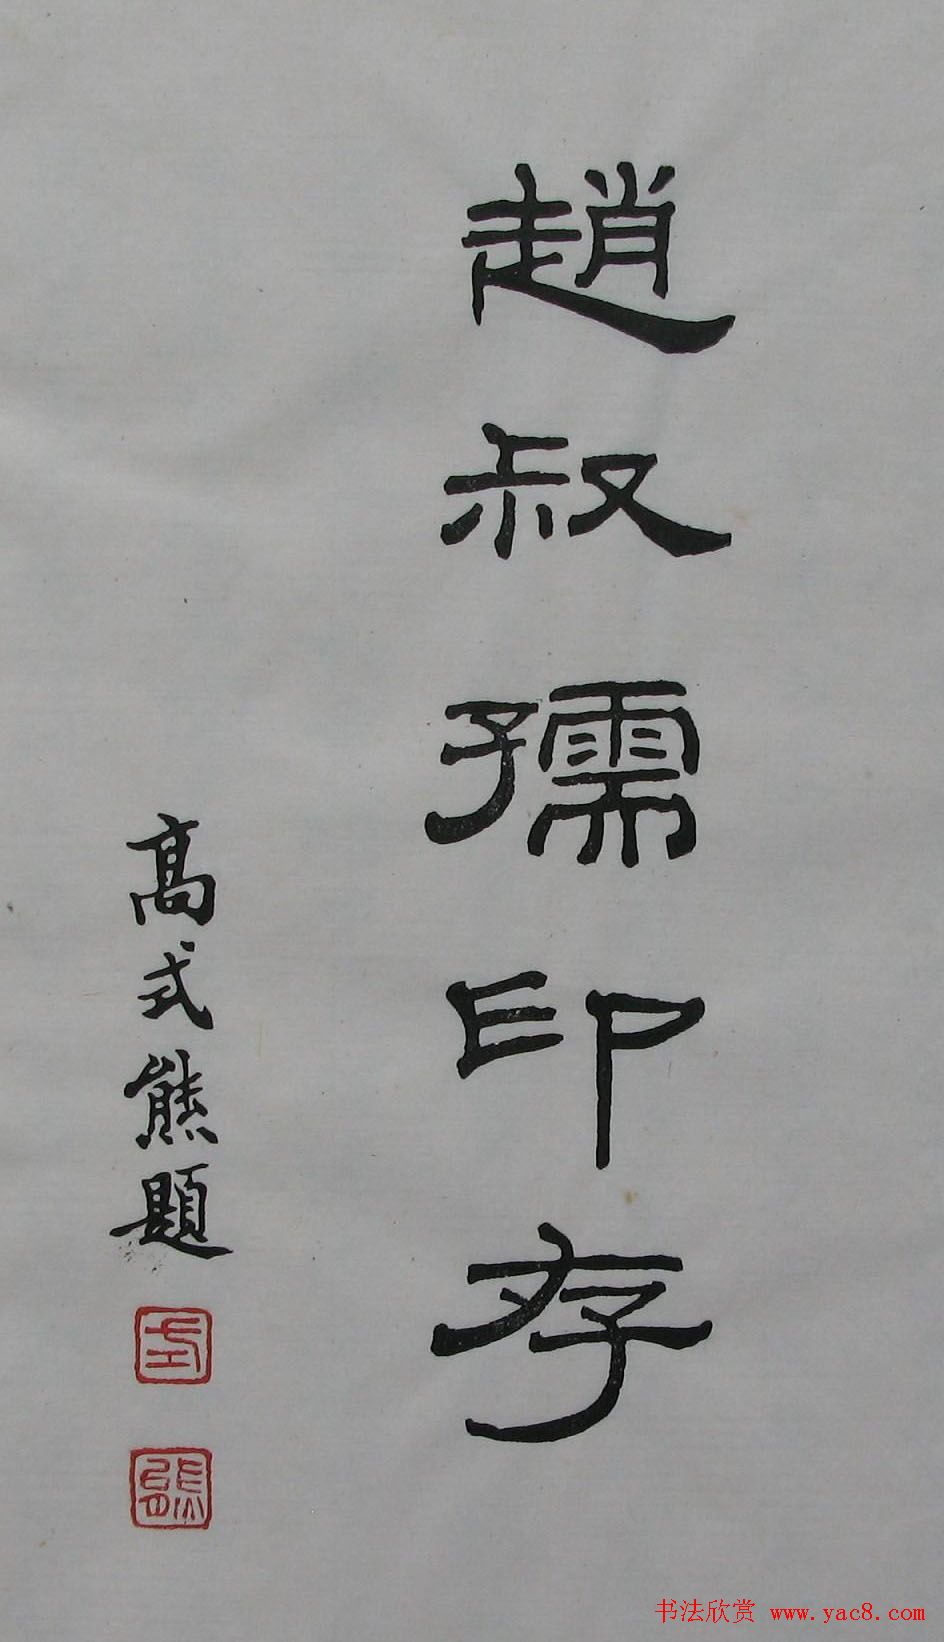 趙叔孺印存
高式熊題
式
熊
书法欣赏 www.yac8.com